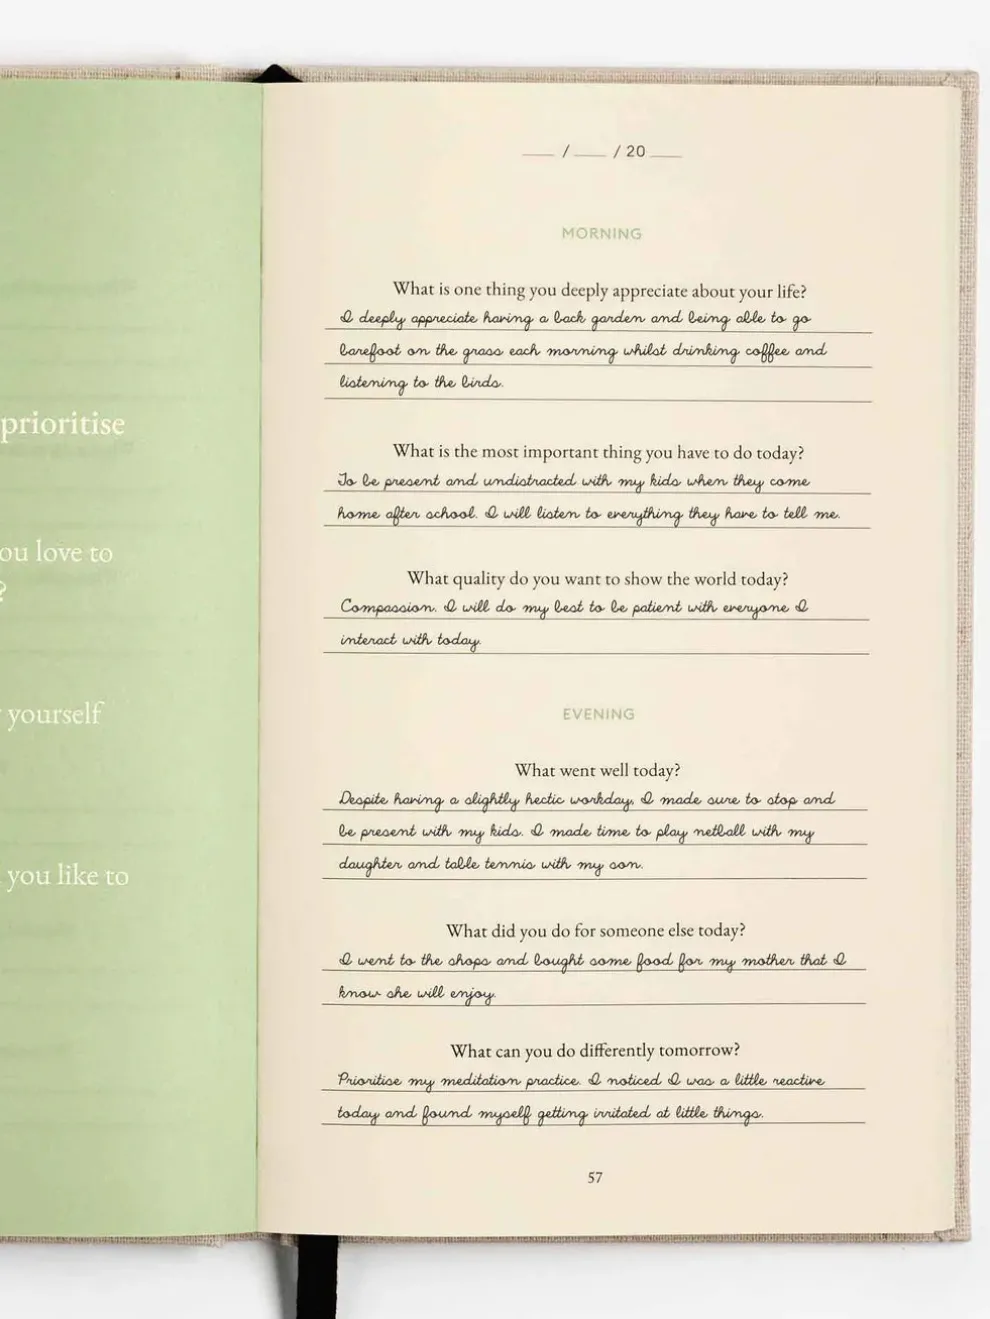 prioritise
ou love to
?
yourself
you like to
__ / __ / 20 __
MORNING
What is one thing you deeply appreciate about your life?
I deeply appreciate having a back garden and being able to go
barefoot on the grass each morning whilst drinking coffee and
listening to the birds.
What is the most important thing you have to do today?
To be present and undistracted with my kids when they come
home after school. I will listen to everything they have to tell me.
What quality do you want to show the world today?
Compassion. I will do my best to be patient with everyone I
interact with today.
EVENING
What went well today?
Despite having a slightly hectic workday, I made sure to stop and
be present with my kids. I made time to play netball with my
daughter and table tennis with my son.
What did you do for someone else today?
I went to the shops and bought some food for my mother that I
know she will enjoy.
What can you do differently tomorrow?
Prioritise my meditation practice. I noticed I was a little reactive
today and found myself getting irritated at little things.
57